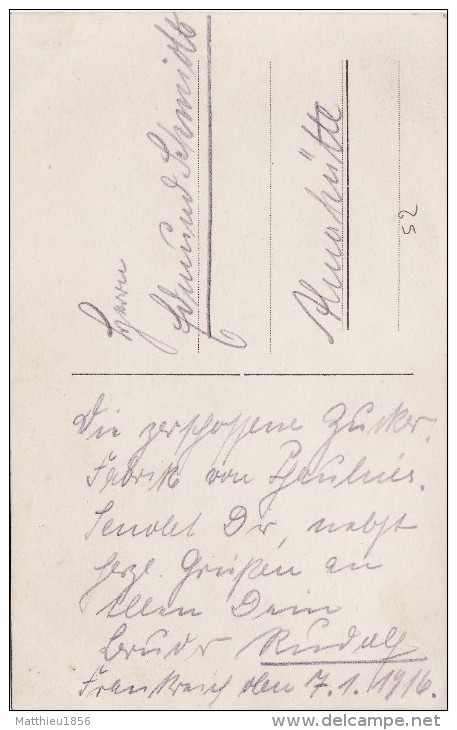 Herrn
Edmund Schmidt
Annahütte
52
Die zerschossene Zucker.
Fabrik von Chaulnes.
Sendet Dir, nebst
herzl. Grüßen an
Allen Dein
Bruder Rudolf
Frankreich den 7.1.1916.
Matthieu1856
delcampe.net